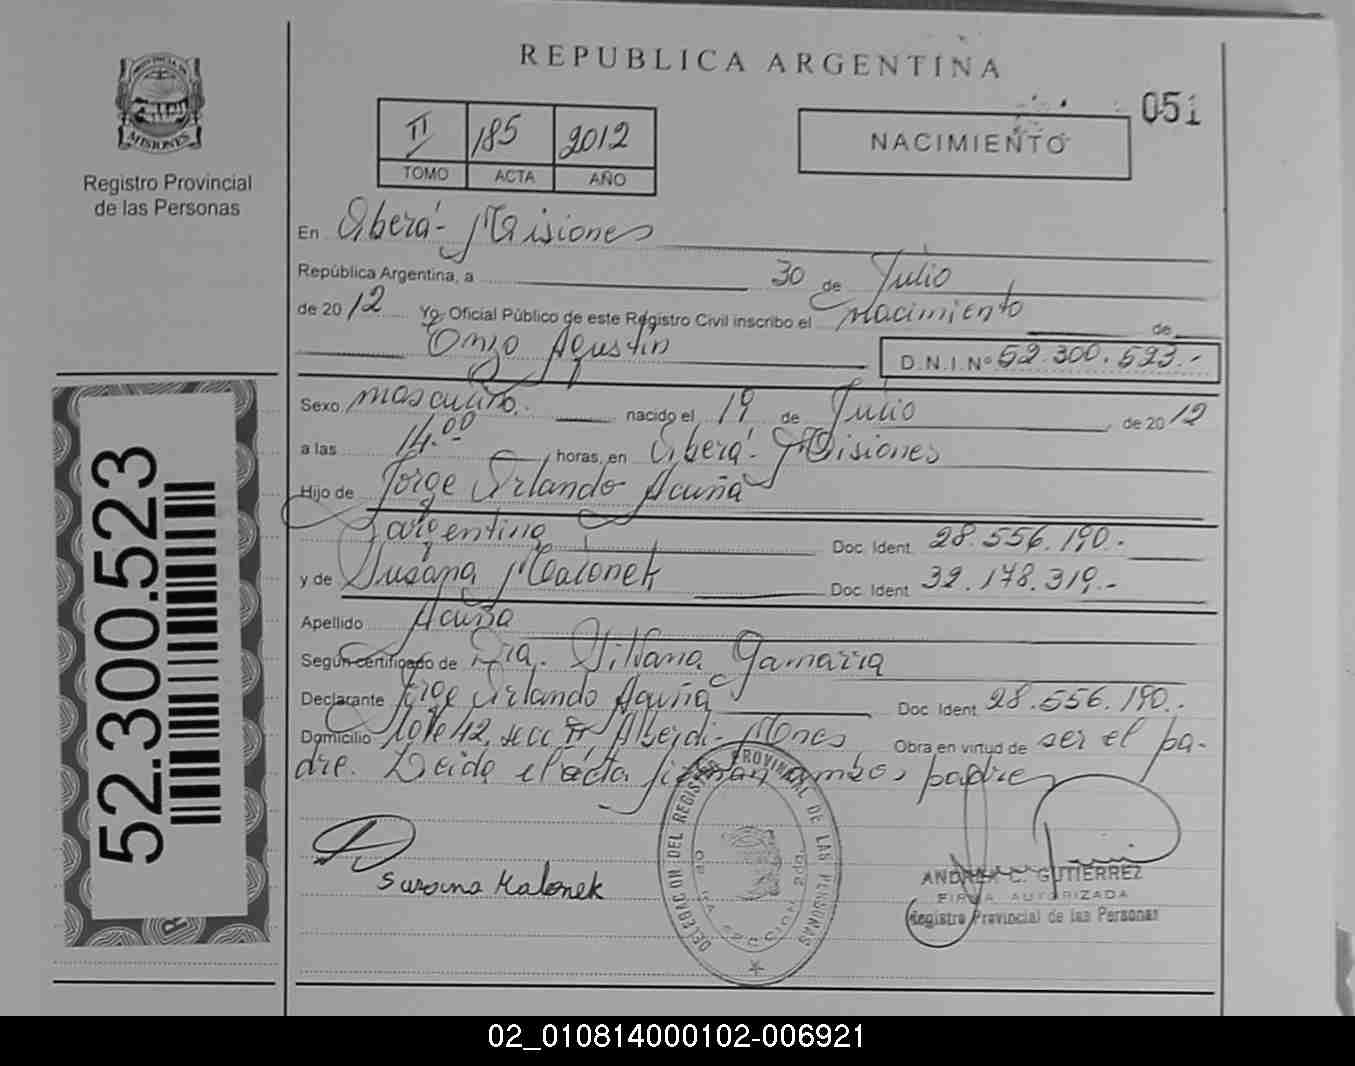 REPUBLICA ARGENTINA
051
PROVINCIA DE
MISIONES
Registro Provincial
de las Personas
II 185 2012
TOMO ACTA AÑO
NACIMIENTO
En Oberá - Misiones
República Argentina, a 30 de Julio
de 2012 Yo, Oficial Público de este Registro Civil inscribo el Nacimiento de
Enzo Agustín D.N.I. Nº 52.300.523.-
Sexo masculino. nacido el 19 de Julio de 2012
a las 14.00 horas, en Oberá - Misiones
Hijo de Jorge Orlando Acuña
argentino Doc. Ident. 28.556.190.-
y de Susana Malonek Doc. Ident. 32.178.319.-
Apellido Acuña
Según certificado de Dra. Silvana Gamarra
Declarante Jorge Orlando Acuña Doc. Ident. 28.556.190.-
Domicilio Lote 42, secc Alberdi - Mnes Obra en virtud de ser el pa-
dre. Leída el acta firman ambos padres
Susana Malonek
DELEGACION DEL REGISTRO PROVINCIAL DE LAS PERSONAS
SECCION 2DA
ANDREA C. GUTIERREZ
FIRMA AUTORIZADA
Registro Provincial de las Personas
52.300.523
02_010814000102-006921